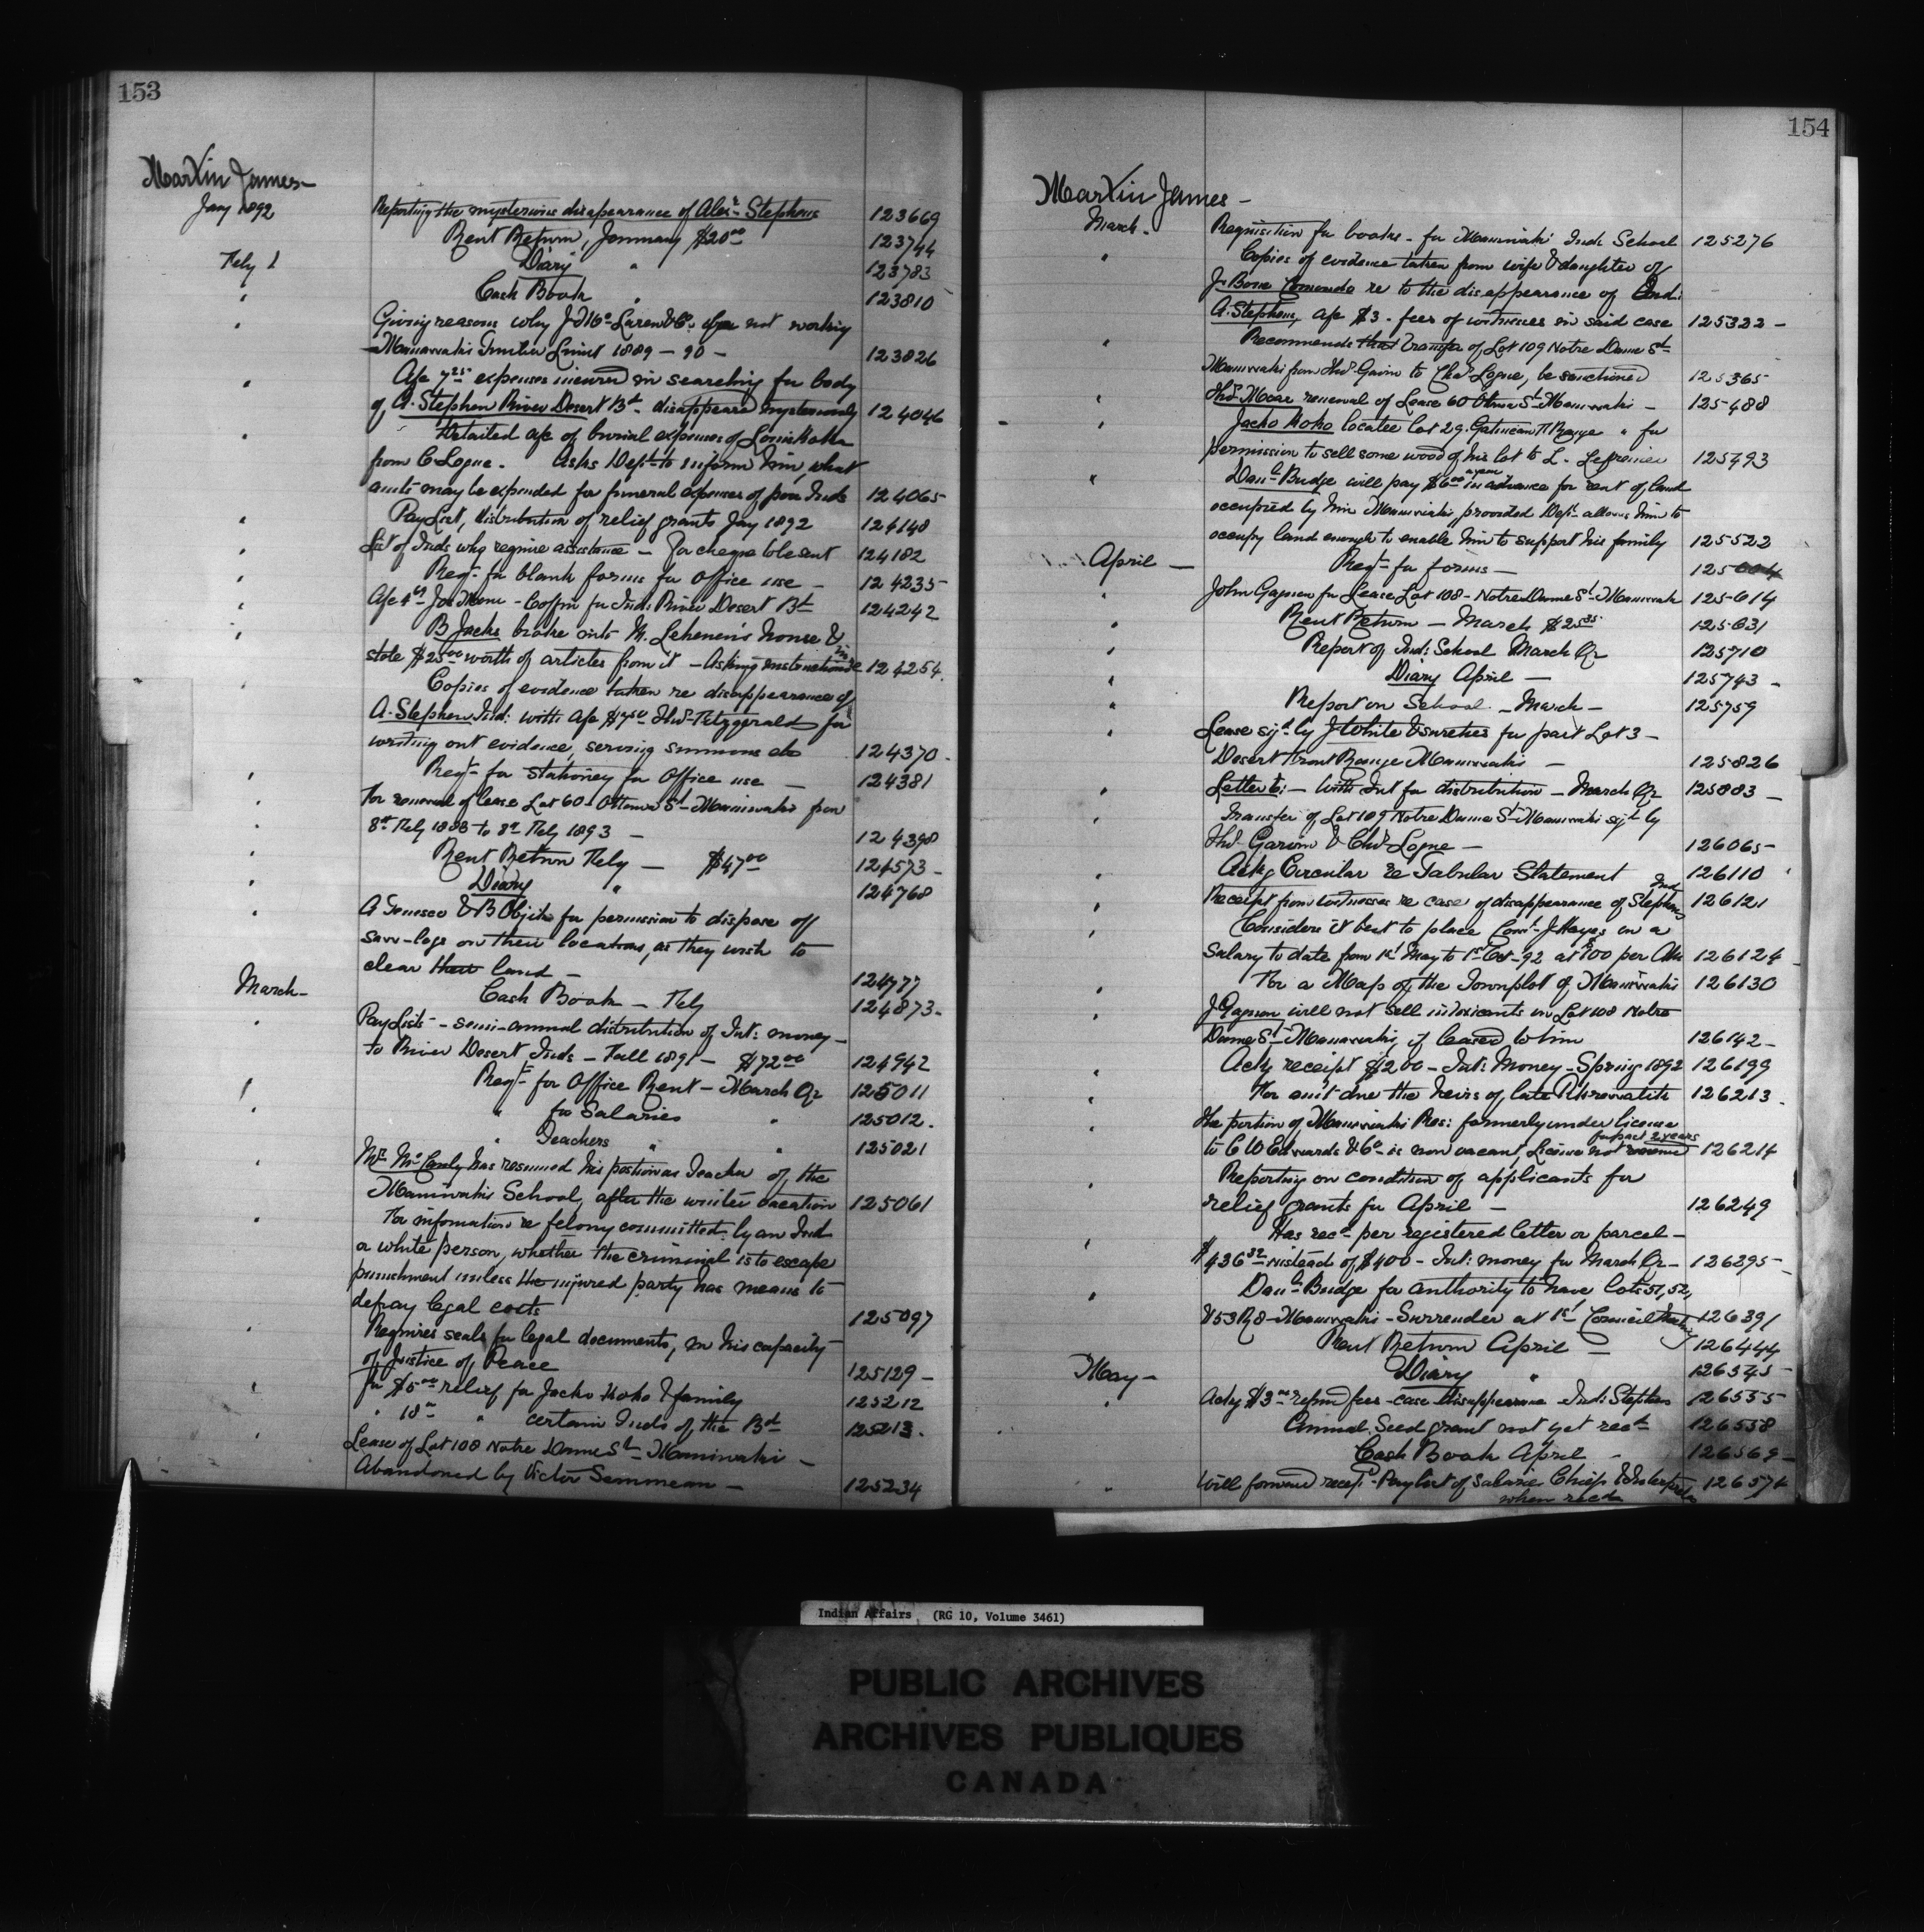 153
Martin James-
Jany 1892
Reporting the mysterious disapearance of Alexr Stephens 123669
Rent Return, January $20.00 123744
Feby 1 Diary " 123783
" Cash Book " 123810
" Giving reasons why J. McLaren & Co. are not working
Maniwaki Timber Limit 1889-90- 123826
" A/c 7.25 expenses incurred in searching for body
of A. Stephen River Desert Bd disappeared mysteriously 124046
" Detailed a/c of burial expenses of
from C Logue. Asks Dept to inform him, what
amts may be expended for funeral expenses of poor Inds 124065
" Pay List, distribution of relief grants Jany 1892 124148
" List of Inds who require assistance - for cheque to be sent 124182
" Reqn for blank forms for office use - 124235
" A/c - Coffin for Ind: River Desert Bd 124242
" B Jacko broke into house &
stole $25.00 worth of articles from it - Asking instructions 124254.
" Copies of evidence taken re disappearance of
A. Stephen Ind: with a/c Thos Fitzgerald for
writing out evidence, serving summons etc 124370.
" Reqn for stationery for Office use - 124381
" For renewal of lease Lot 60 - Ottawa St Maniwaki from
8th Feby 1888 to 8th Feby 1893 - 124398
" Rent Return Feby - $47.00 124573-
" Diary " 124768
" A Tenesco & B for permission to dispose of
saw-logs on their locations, as they wish to
clear their land - 124777
March- Cash Book - Feby 124873-
" Pay Lists - semi-annual distribution of Int: money -
to River Desert Inds - Fall 1891 - $72.00 124942
" Reqn for Office Rent - March Qr 125011
" " for Salaries " 125012.
" Teachers " " 125021
" Mr McCauly has resumed his position as Teacher of the
Maniwaki School, after the winter vacation 125061
" For information re felony committed by an Ind
or white person, whether the criminal is to escape
punishment unless the injured party has means to
defray legal costs 125097
" Requires seals for legal documents, in his capacity
of Justice of Peace 125129-
" For $5.00 relief for Jacko Koko & family 125212
" 18.00 " certain Inds of the Bd 125213.
" Lease of Lot 108 Notre Dame St Maniwaki -
Abandoned by Victor - 125234
154
Martin James-
March. Requisition for books - for Maniwaki Ind: School 125276
" Copies of evidence taken from wife & daughter of
J. Bone re to the disappearance of Ind:
A. Stephens, a/c $3 - fees of witnesses in said case 125322-
" Recommends that transfer of Lot 109 Notre Dame St
Maniwaki from Thos Gavin to Chas Logue, be sanctioned 125365-
" Thos Moar renewal of Lease 60 Ottawa St Maniwaki - 125488
" Jacko Koko locatee lot 29. Gatineau Ft Range " for
permission to sell some wood of his lot to L. 125493
" Danl Budge will pay $6.00 a year in advance for rent of land
occupied by him Maniwaki, provided Dept allows him to
occupy land enough to enable him to support his family 125522
April - Reqn for forms - 125604
" John Gagnon for Lease Lot 108 - Notre Dame St Maniwaki 125614
" Rent Return - March $25.25 125631
" Report of Ind: School March Qr 125710
" Diary April - 125743-
" Report on School - March - 125759
" Lease sigd by J White & sureties for part Lot 3 -
Desert Front Range Maniwaki - 125826
" Letter C: - with Int for distribution - March Qr 125883-
" Transfer of Lot 109 Notre Dame St Maniwaki sigd by
Thos Gavin & Chas Logue - 126065-
" Ackg Circular re Tabular Statement 126110
" Receipt from witnesses re case of disappearance of Ind Stephens 126121
" Considers it best to place Const J. Hayes on a
salary to date from 1st May to 1st Oct-92 at per 126124-
" For a Map of the Townplot of Maniwaki 126130
" J. Gagnon will not sell intoxicants on Lot 108 Notre
Dame St Maniwaki, if leased to him 126142-
" Ackg receipt $200 - Int: Money - Spring 1892 126199
" For amt due the heirs of late 126213.
" The portion of Maniwaki Res: formerly under license
to C W Edwards & Co is now vacant, License not for past 2 years 126214
" Reporting on condition of applicants for
relief grants for April - 126249
" Has recd per registered letter or parcel -
$436.32 instead of $400 - Int: money for March Qr - 126295-
" Danl Budge for authority to have lots 51, 52,
& 53 R8 - Maniwaki - Surrender at 1st Council Meeting 126391
Rent Return April - 126444
May - Diary " 126545-
" Ackg $3.00 refund fees - case disappearance Ind: Stephen 126555
Annual Seed grant not yet recd 126558
Cash Book April - 126569-
" Will forward recept Paylist of Salaries Chiefs & Interpreter 126574
when recd
Indian Affairs (RG 10, Volume 3461)
PUBLIC ARCHIVES
ARCHIVES PUBLIQUES
CANADA